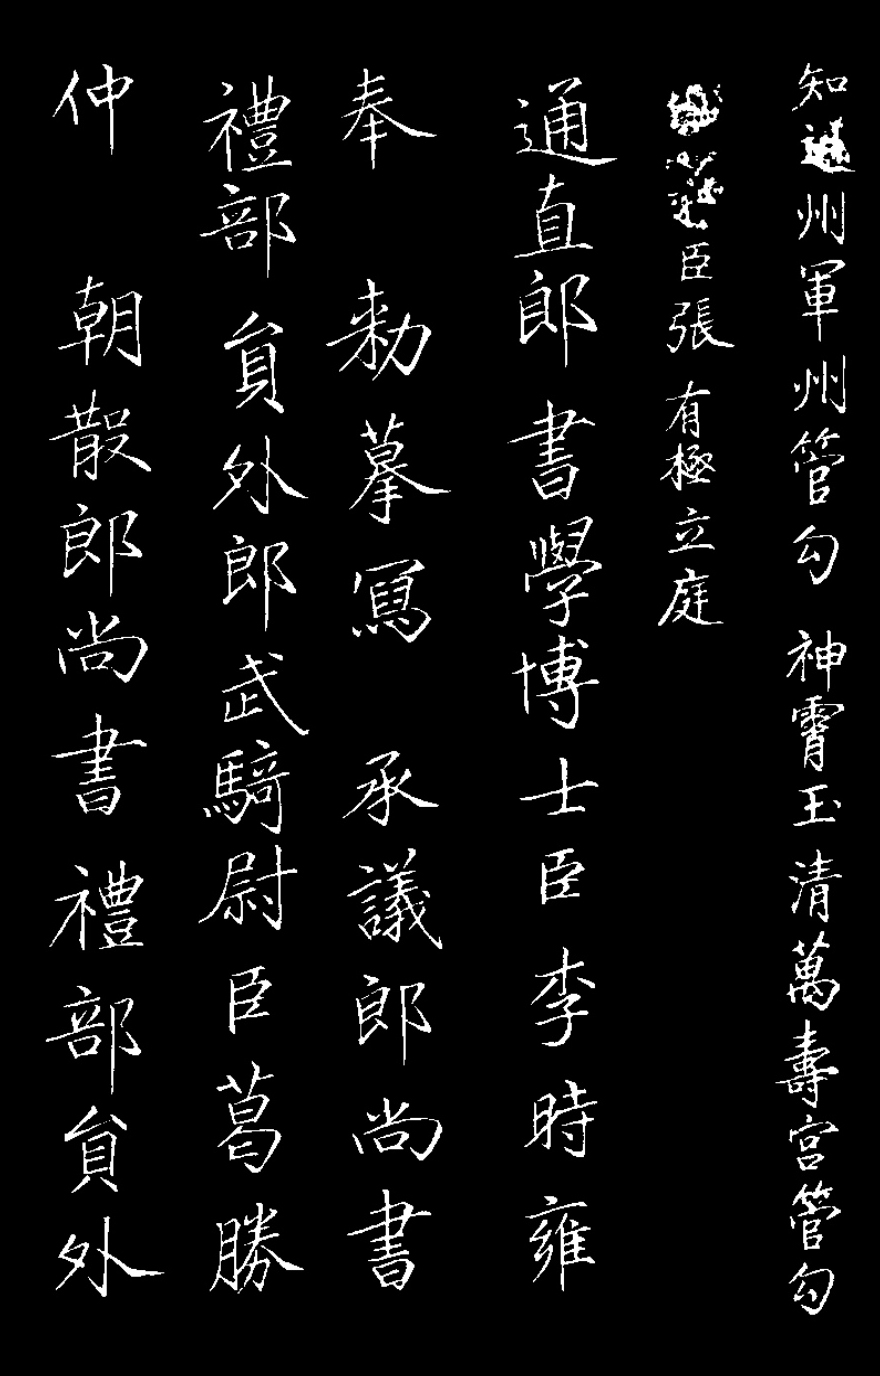 知通州軍州管勾神霄玉清萬壽宮管勾
臣張有極立庭
通直郎書學博士臣李時雍
奉敕摹寫承議郎尚書
禮部員外郎武騎尉臣葛勝
仲朝散郎尚書禮部員外